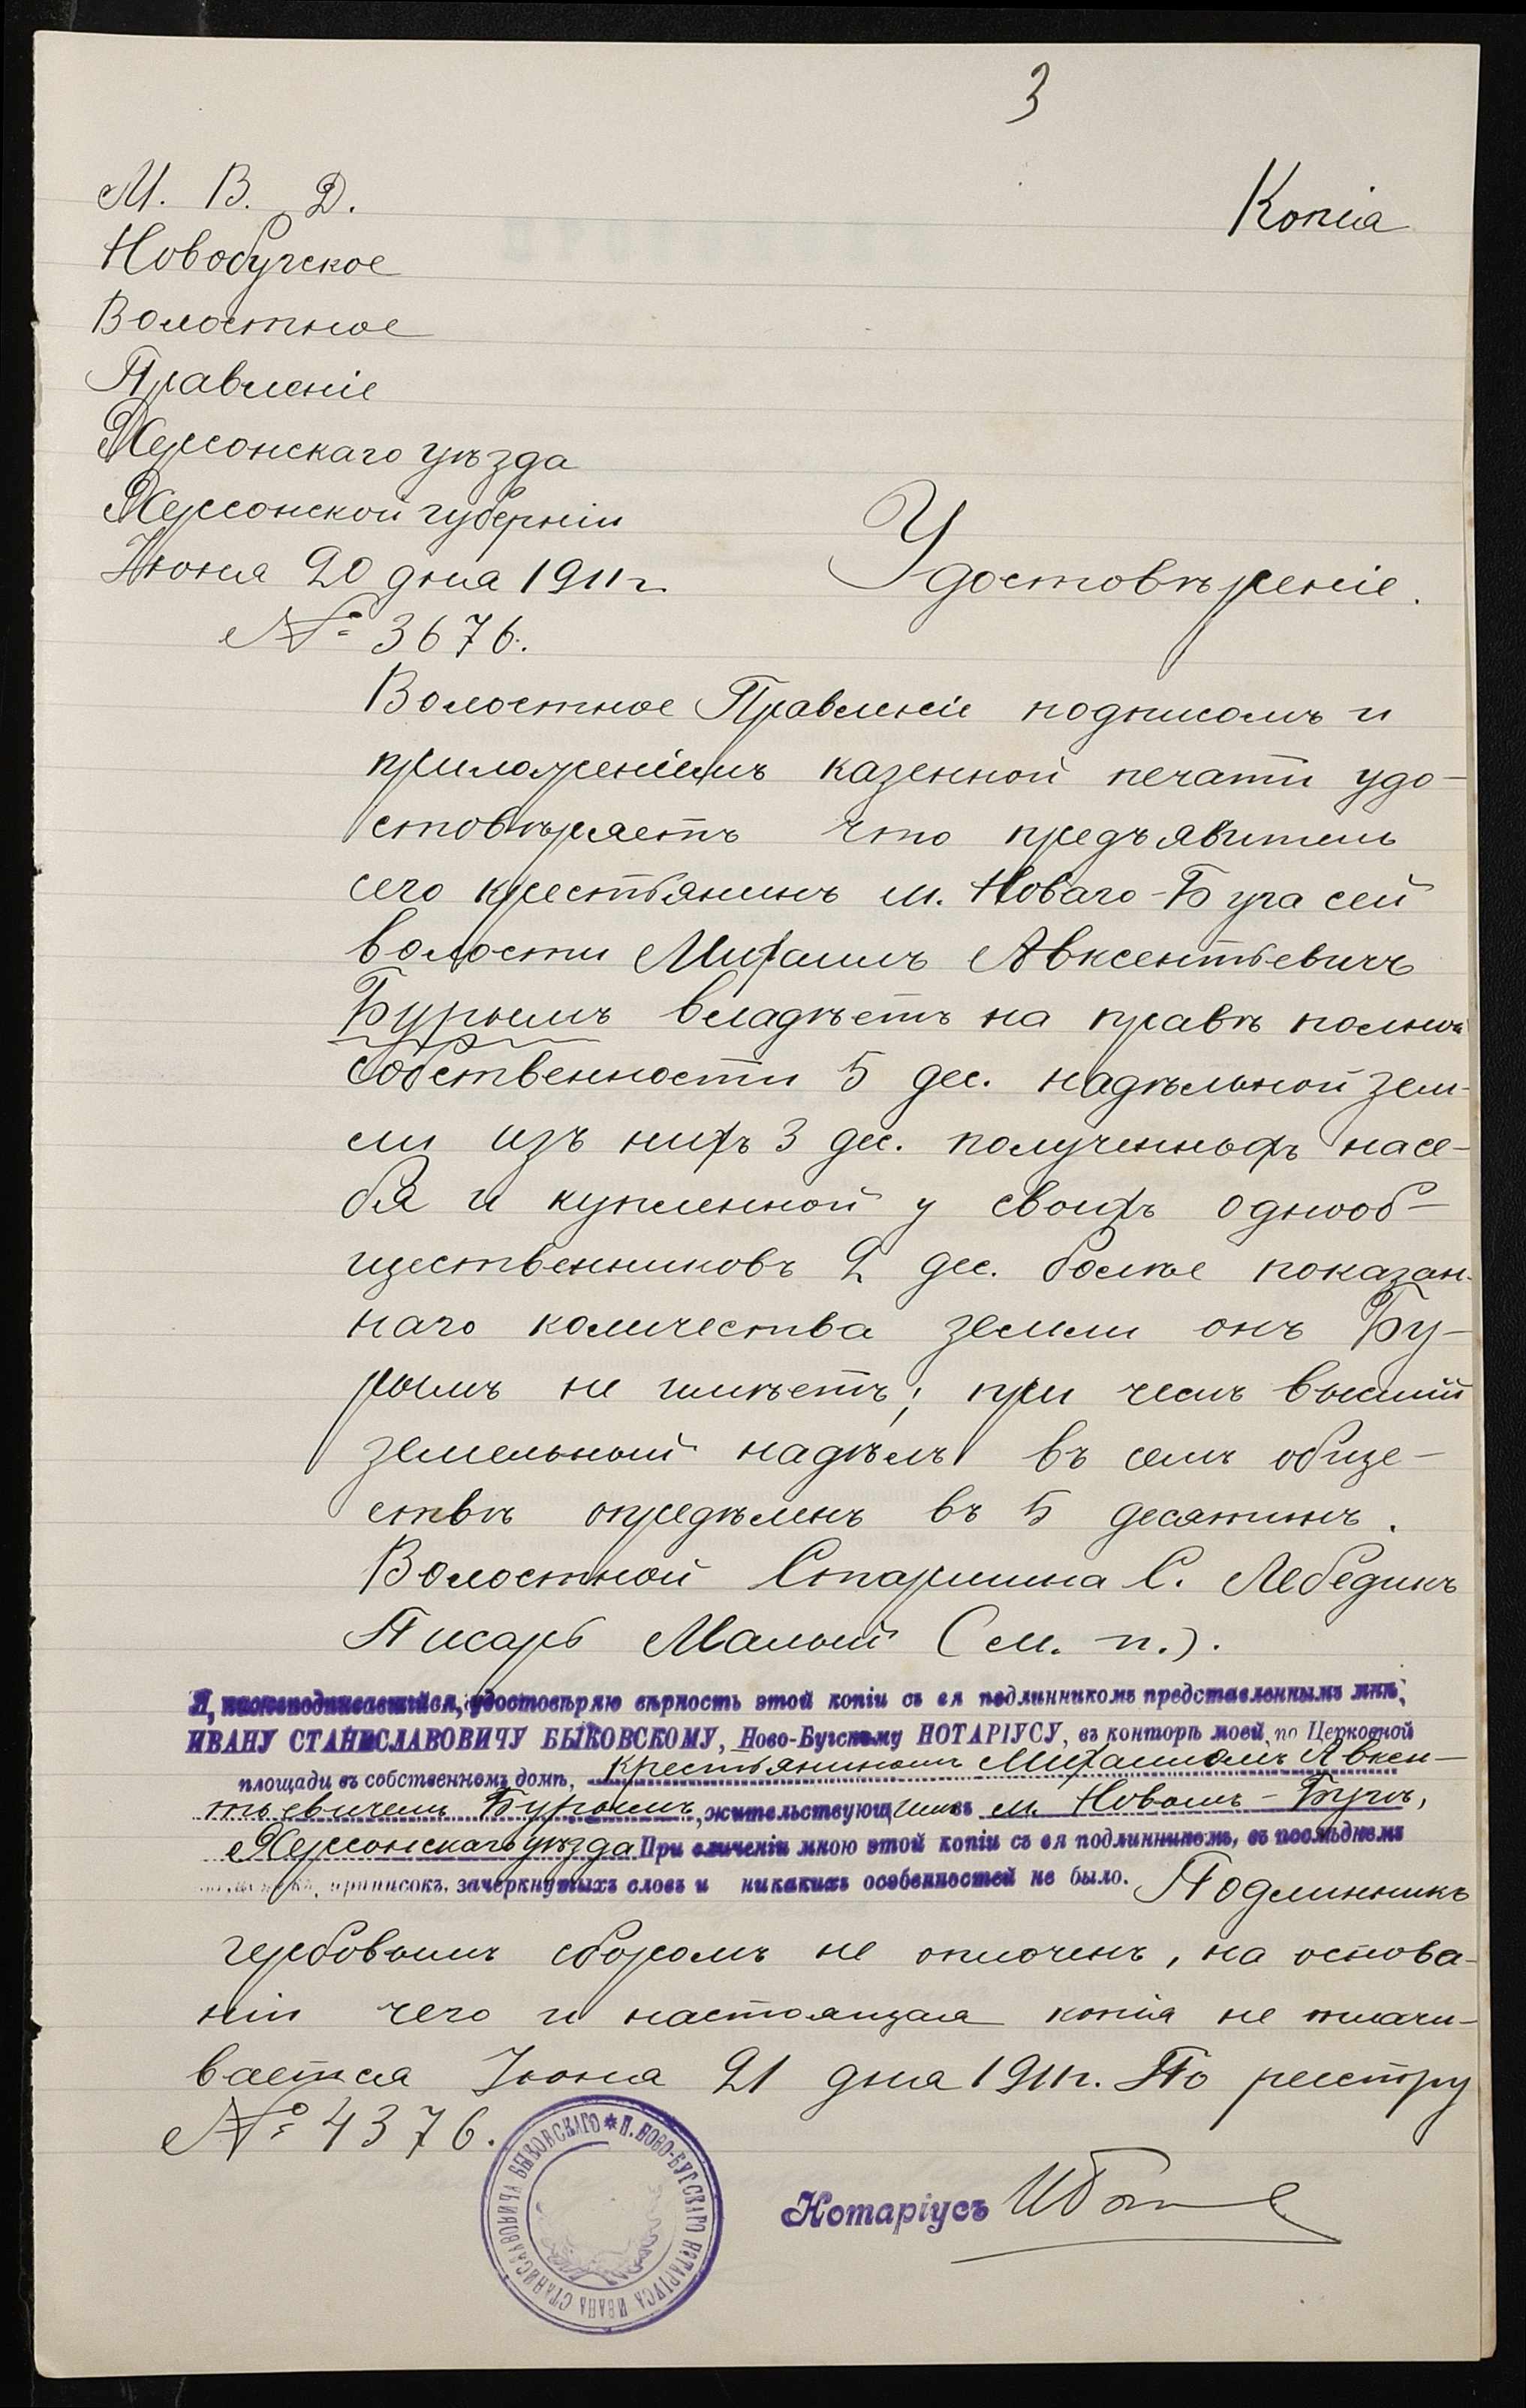 3
М. В. Д.
Копія
Новобугское
Волостное
Правленіе
Херсонскаго уѣзда
Херсонской губерніи
Іюня 20 дня 1911 г.
Удостовѣреніе.
№ 3676.
Волостное Правленіе подписомъ и
приложеніемъ казенной печати удо-
стовѣряетъ что предъявитель
сего крестьянинъ м. Новаго-Буга сей
волости Михаилъ Авксентьевичъ
Бурымъ владѣетъ на правѣ полной
собственности 5 дес. надѣльной зем-
ли изъ нихъ 3 дес. полученныхъ на се-
бя и купленной у своихъ однооб-
щественниковъ 2 дес. болѣе показан-
наго количества земли онъ Бу-
рымъ не имѣетъ; при чемъ высшій
земельный надѣлъ въ семъ обще-
ствѣ опредѣленъ въ 5 десятинъ.
Волостной Старшина С. Лебединъ
Писарь Малый (м. п.).
Я, нижеподписавшійся, удостовѣряю вѣрность этой копіи съ ея подлинникомъ представленнымъ мнѣ,
ИВАНУ СТАНИСЛАВОВИЧУ БЫКОВСКОМУ, Ново-Бугскому НОТАРІУСУ, въ конторѣ моей, по Церковной
площади въ собственномъ домѣ, крестьяниномъ Михаиломъ Авксен-
тьевичемъ Бурымъ, жительствующимъ въ м. Новомъ-Бугѣ,
Херсонскаго уѣзда При сличеніи мною этой копіи съ ея подлинникомъ, въ послѣднемъ
приписокъ, зачеркнутыхъ словъ и никакихъ особенностей не было. Подлинникъ
гербовымъ сборомъ не оплоченъ, на основа-
ніи чего и настоящая копія не оплачи-
вается Іюня 21 дня 1911 г. По реестру
№ 4376.
* П. НОВО-БУГСКАГО НОТАРІУСА ИВАНА СТАНИСЛАВОВИЧА БЫКОВСКАГО
Нотаріусъ